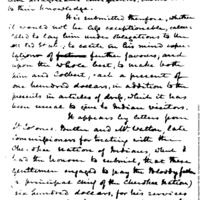 to their knowledge.
It is submitted therefore, whether
it would not be less exceptionable, calcu-
lated to lay him under obligations to the
to excite in his mind expec-
tations of further favours, and
upon the whole best, to make both
him and Collect, each a present of
one hundred dollars, in addition to the
presents in articles of dress, which it has
been usual to give to Indian visitors.
It appears by letters from
Colonel Butler and Mr. Walton, late
Commissioners for treating with the
Cherokee Nation of Indians, which I
had the honour to submit, that these
gentlemen engaged to pay the Bloody fellow
(a principal chief of the Cherokee Nation)
hundred dollars, for his services